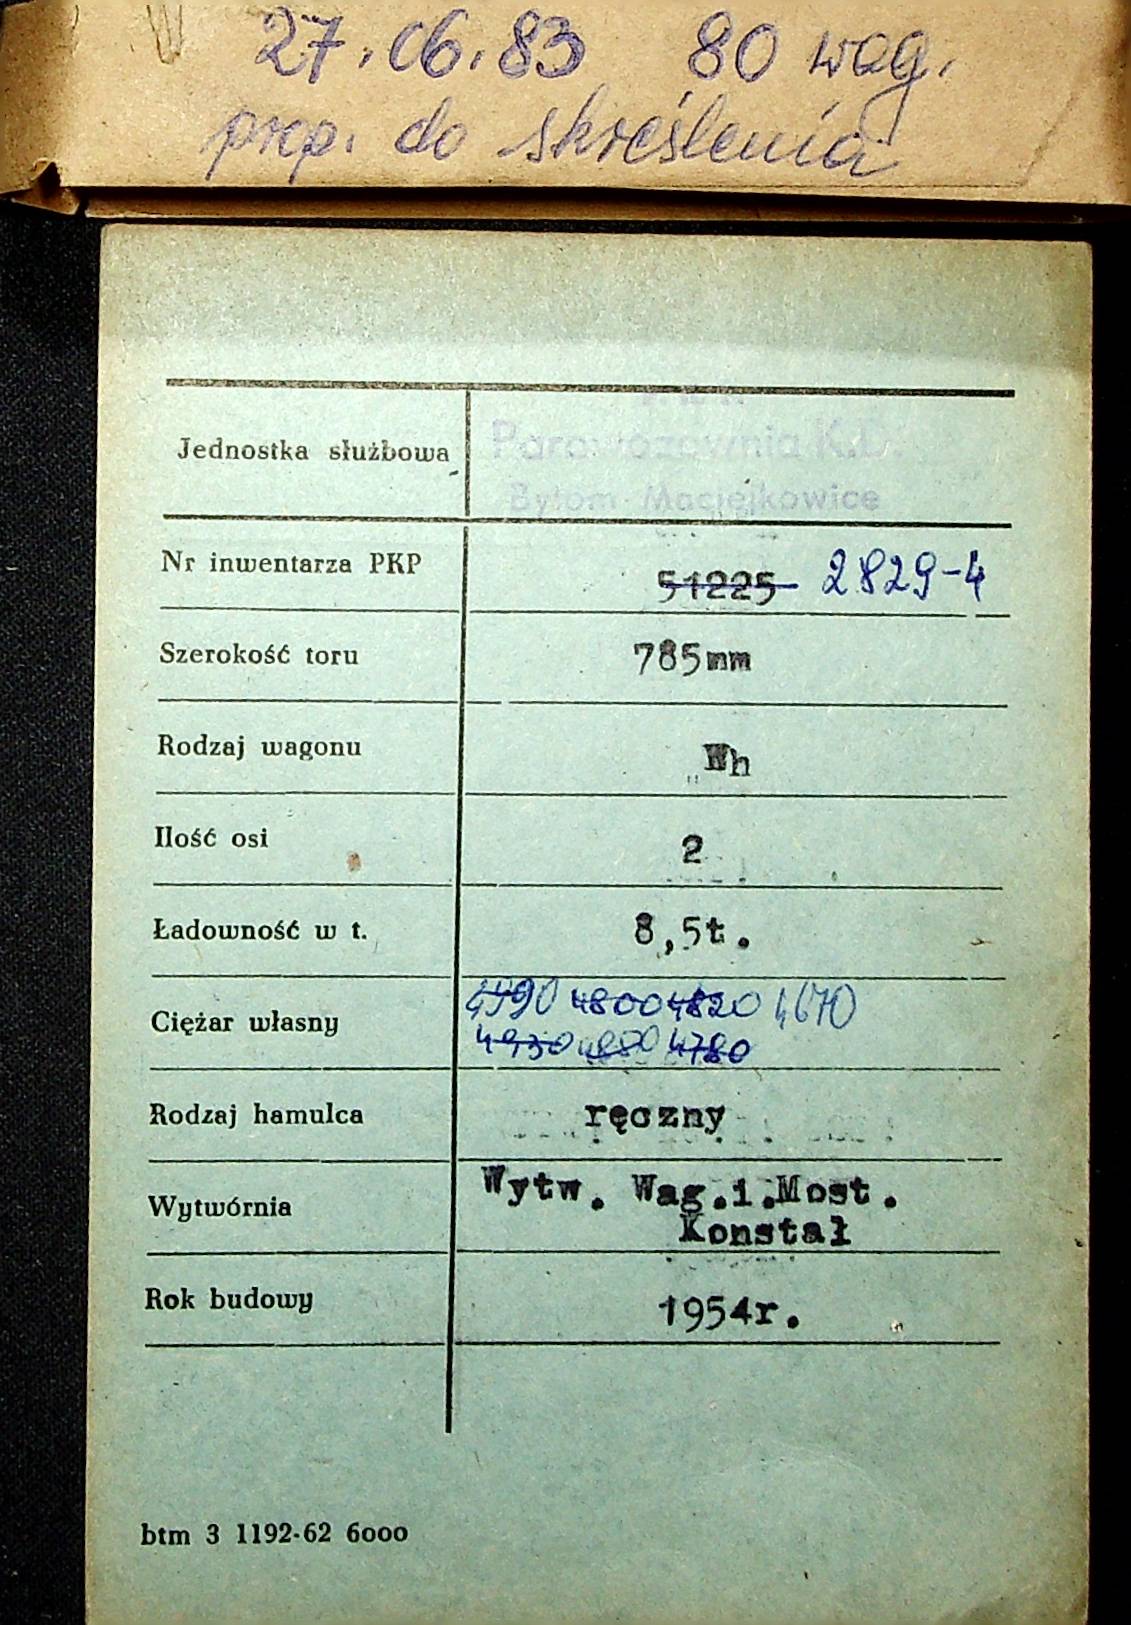 27.06.83 80 wag.
prop. do skreślenia
Jednostka służbowa
Parowozownia K.D.
Bytom Maciejkowice
Nr inwentarza PKP 51225 2829-4
Szerokość toru 785mm
Rodzaj wagonu Wh
Ilość osi 2
Ładowność w t. 8,5t.
4990 4800 4820 4670
Ciężar własny
4930 4880 4780
Rodzaj hamulca ręczny
Wytw. Wag.i.Most.
Wytwórnia
Konstał
Rok budowy 1954r.
btm 3 1192-62 6000